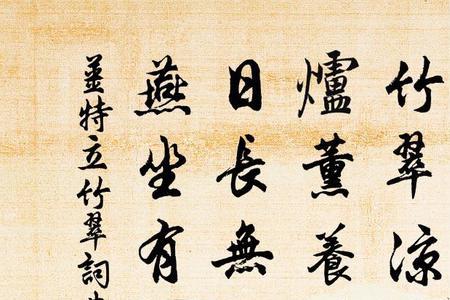 竹翠涼
爐薰養
日長無
燕坐有
薑特立竹翠詞